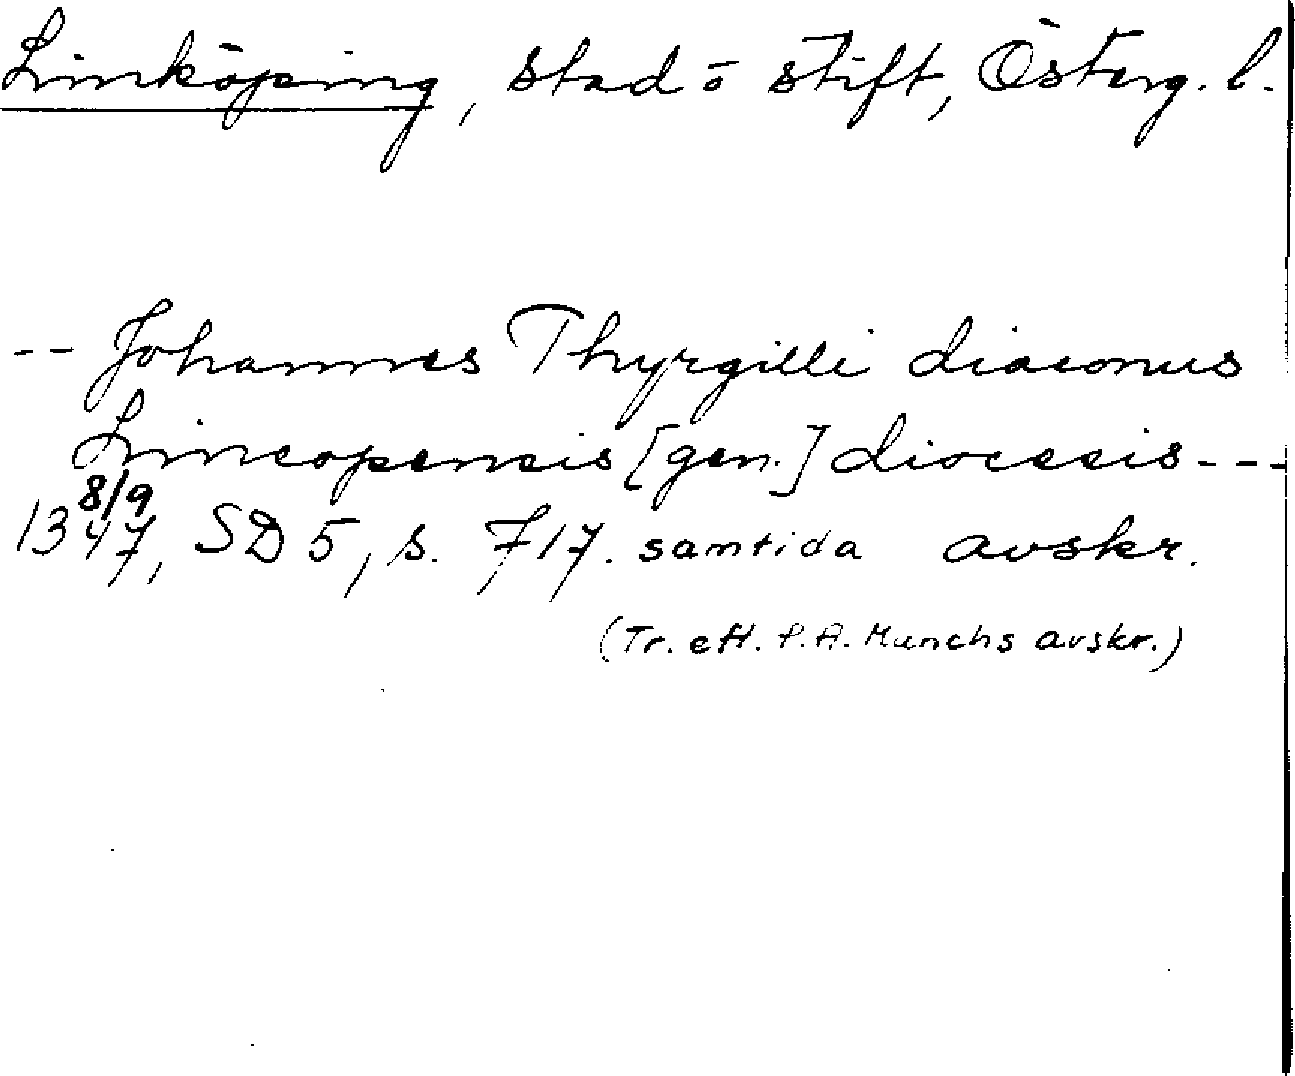 Linköping, stad ō stift, Österg. l.
-- Johannes Thyrgilli diaconus
Lincopensis [gen.] diocesis ---
8/9
1347, SD 5, s. 717. samtida avskr.
(Tr. eft. P.A. Munchs avskr.)